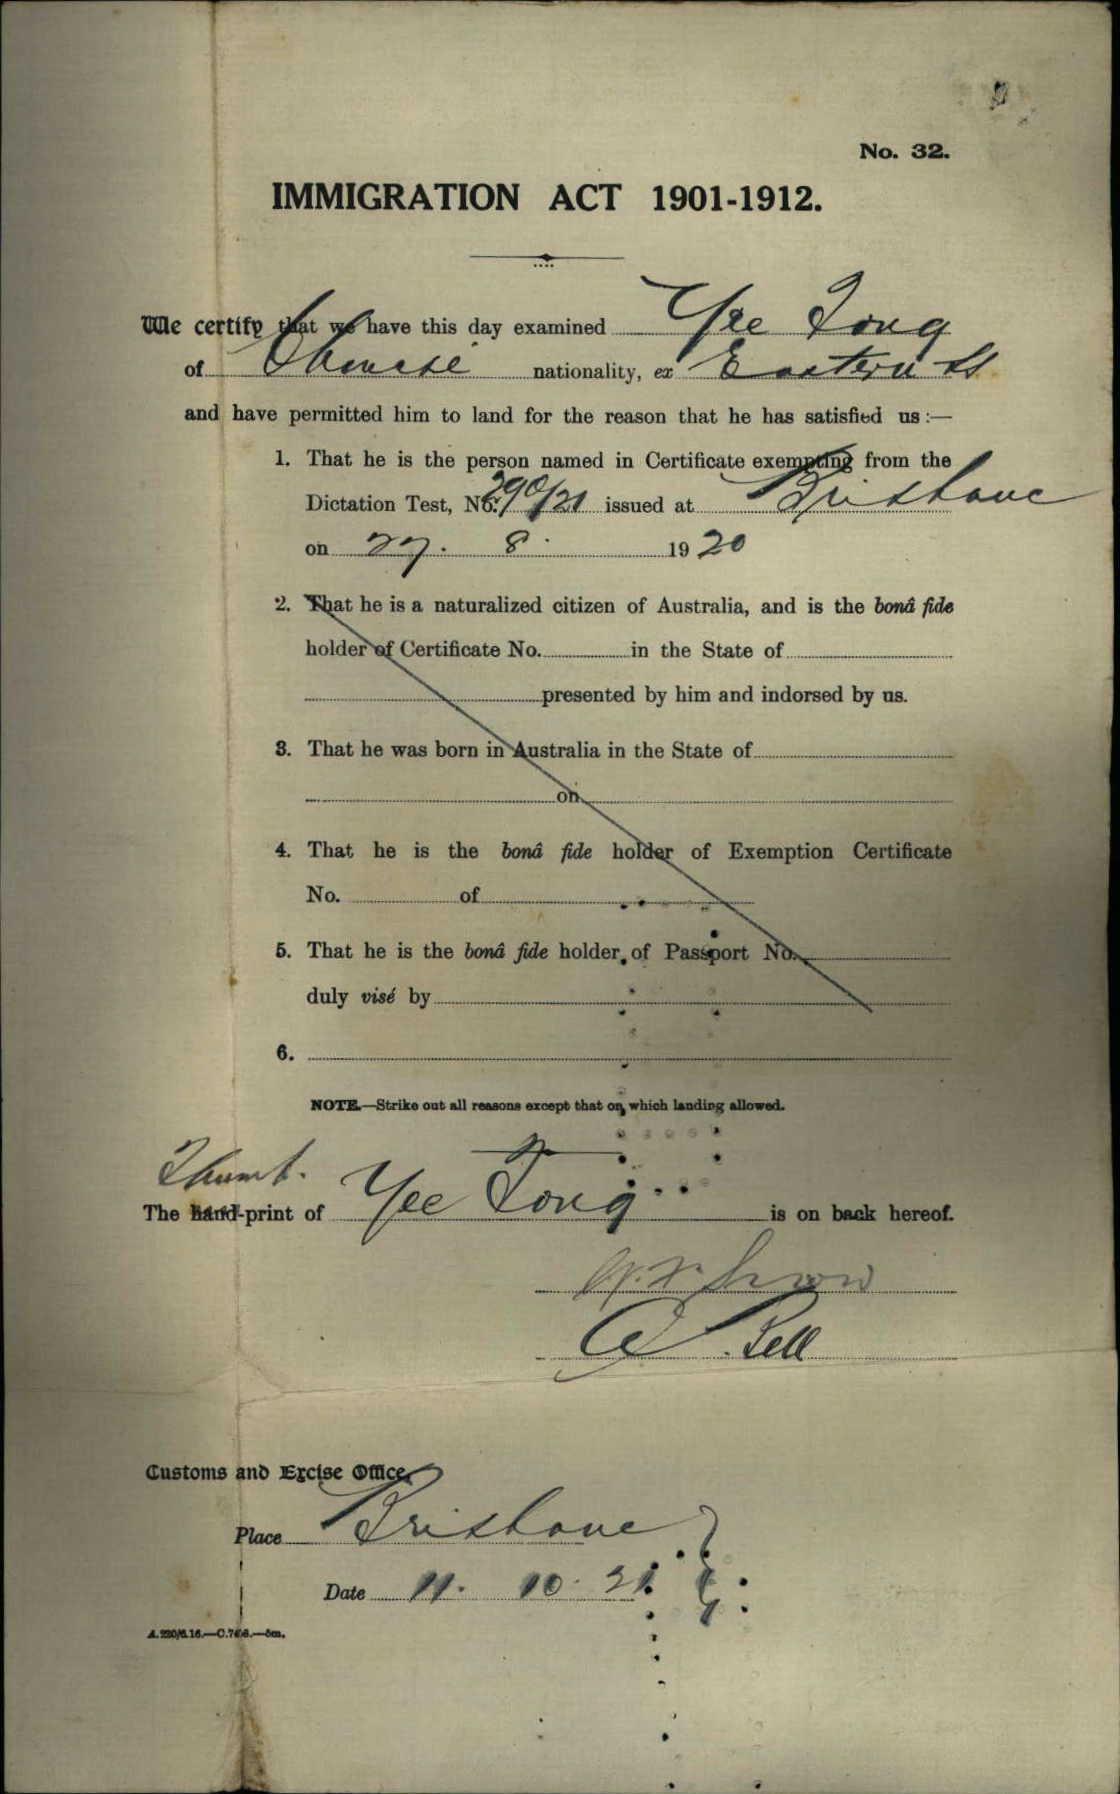 No. 32.
IMMIGRATION ACT 1901-1912.
We certify that we have this day examined Yee Tong
of Chinese nationality, ex Eastern
and have permitted him to land for the reason that he has satisfied us :—
1. That he is the person named in Certificate exempting from the
Dictation Test, No. 290/21 issued at Brisbane
on 27. 8. 1920
2. That he is a naturalized citizen of Australia, and is the bonâ fide
holder of Certificate No. in the State of
presented by him and indorsed by us.
3. That he was born in Australia in the State of
on
4. That he is the bonâ fide holder of Exemption Certificate
No. of
5. That he is the bonâ fide holder of Passport No.
duly visé by
6.
NOTE.—Strike out all reasons except that on which landing allowed.
Thumb.
The hand-print of Yee Tong is on back hereof.
Bell
Customs and Excise Office,
Place Brisbane
Date 11. 10. 21.